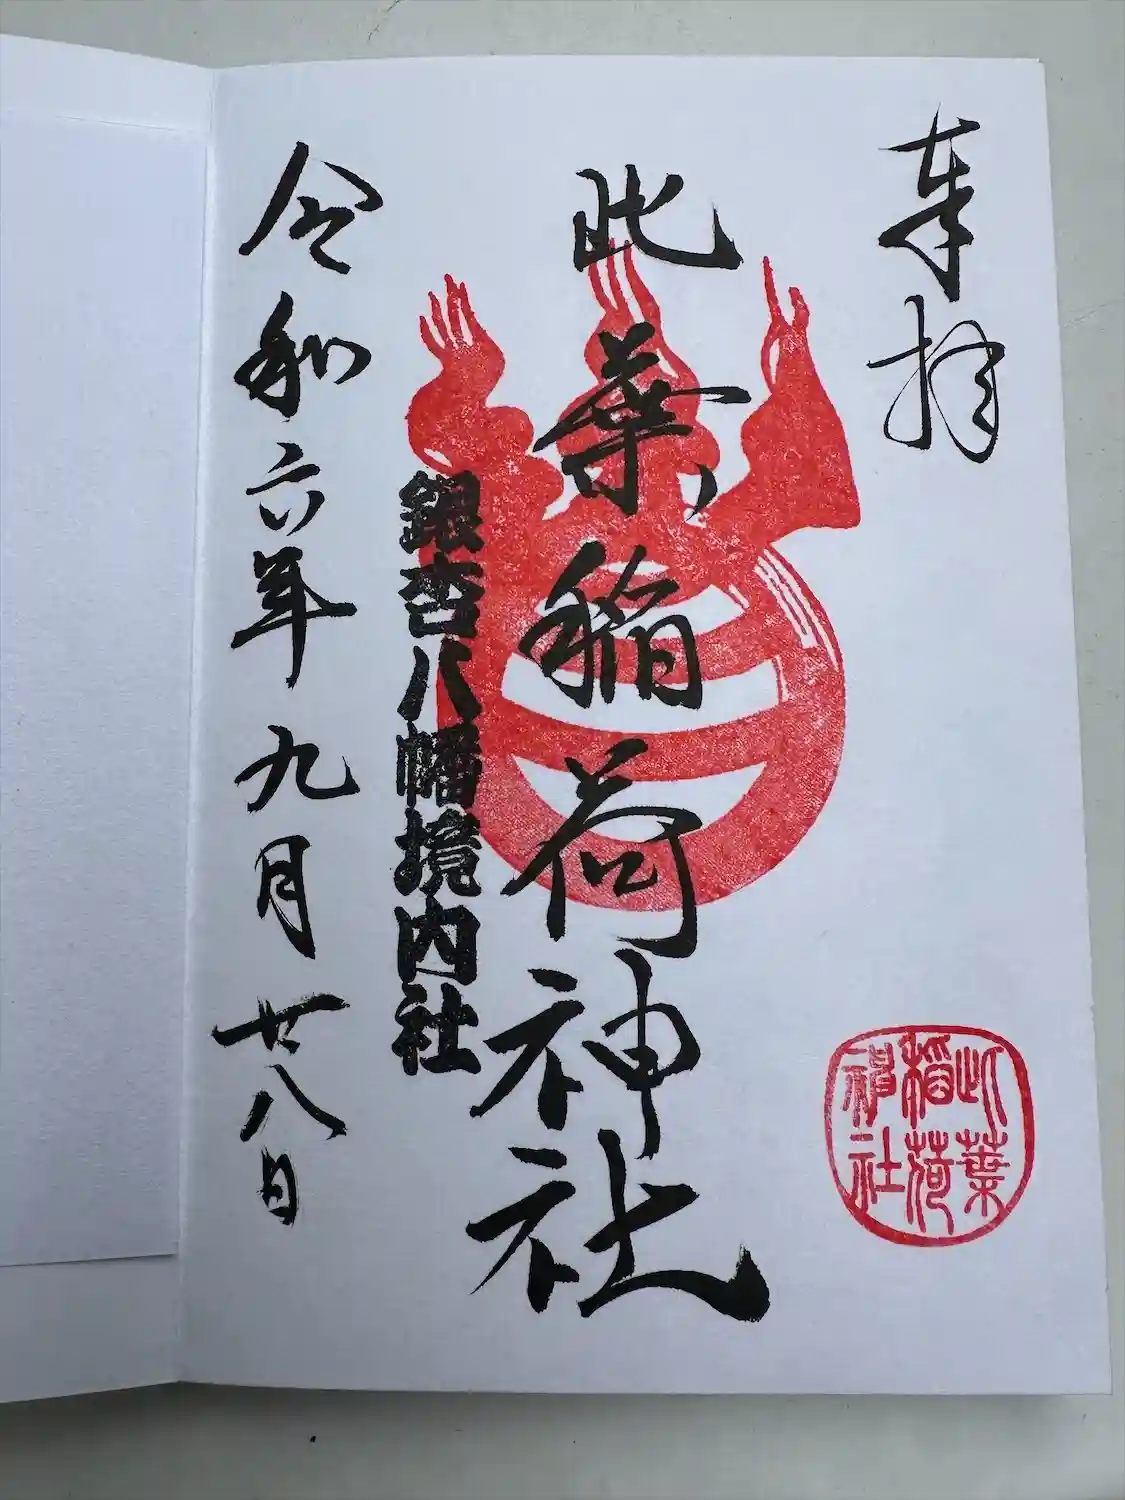 奉拝
此葉稲荷神社
銀杏八幡境内社
令和六年九月廿八日
此葉
稲荷
神社